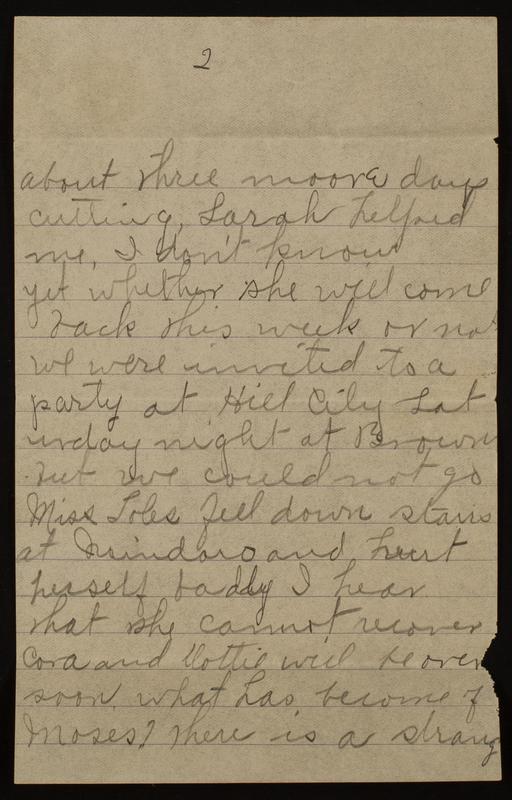 2
about three moore days
cutting, Sarah helped
me, I don't know
yet whether she will come
back this week or not
we were invited to a
party at Hill City Sat
urday night at Brown
but we could not go
Miss Soles fell down stairs
at and hurt
herself badly I hear
that she cannot recover
Cora and Dottie will be over
soon. what has become of
Moses? there is a strang